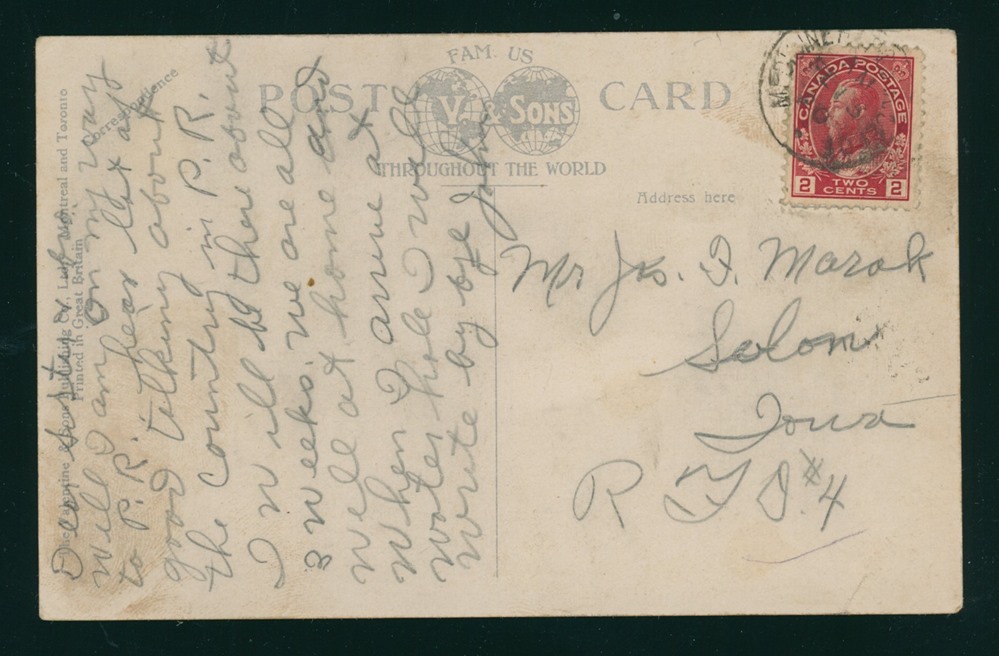 POST CARD
FAM. US
V. & SONS
THROUGHOUT THE WORLD
Correspondence
Address here
Valentine & Sons Publishing Co., Ltd., Montreal and Toronto
Printed in Great Britain
CANADA POSTAGE
2 TWO CENTS 2
Dear Sister
Well I am on my way
to P. R. hear lot als
good talking about
the country in P. R.
I will be there about
3 weeks. we are all
well at home and
When I arrive at
Water hole I will
write by bye John
Mr Jas. I. Marak
Solon
Iowa
R F D #4